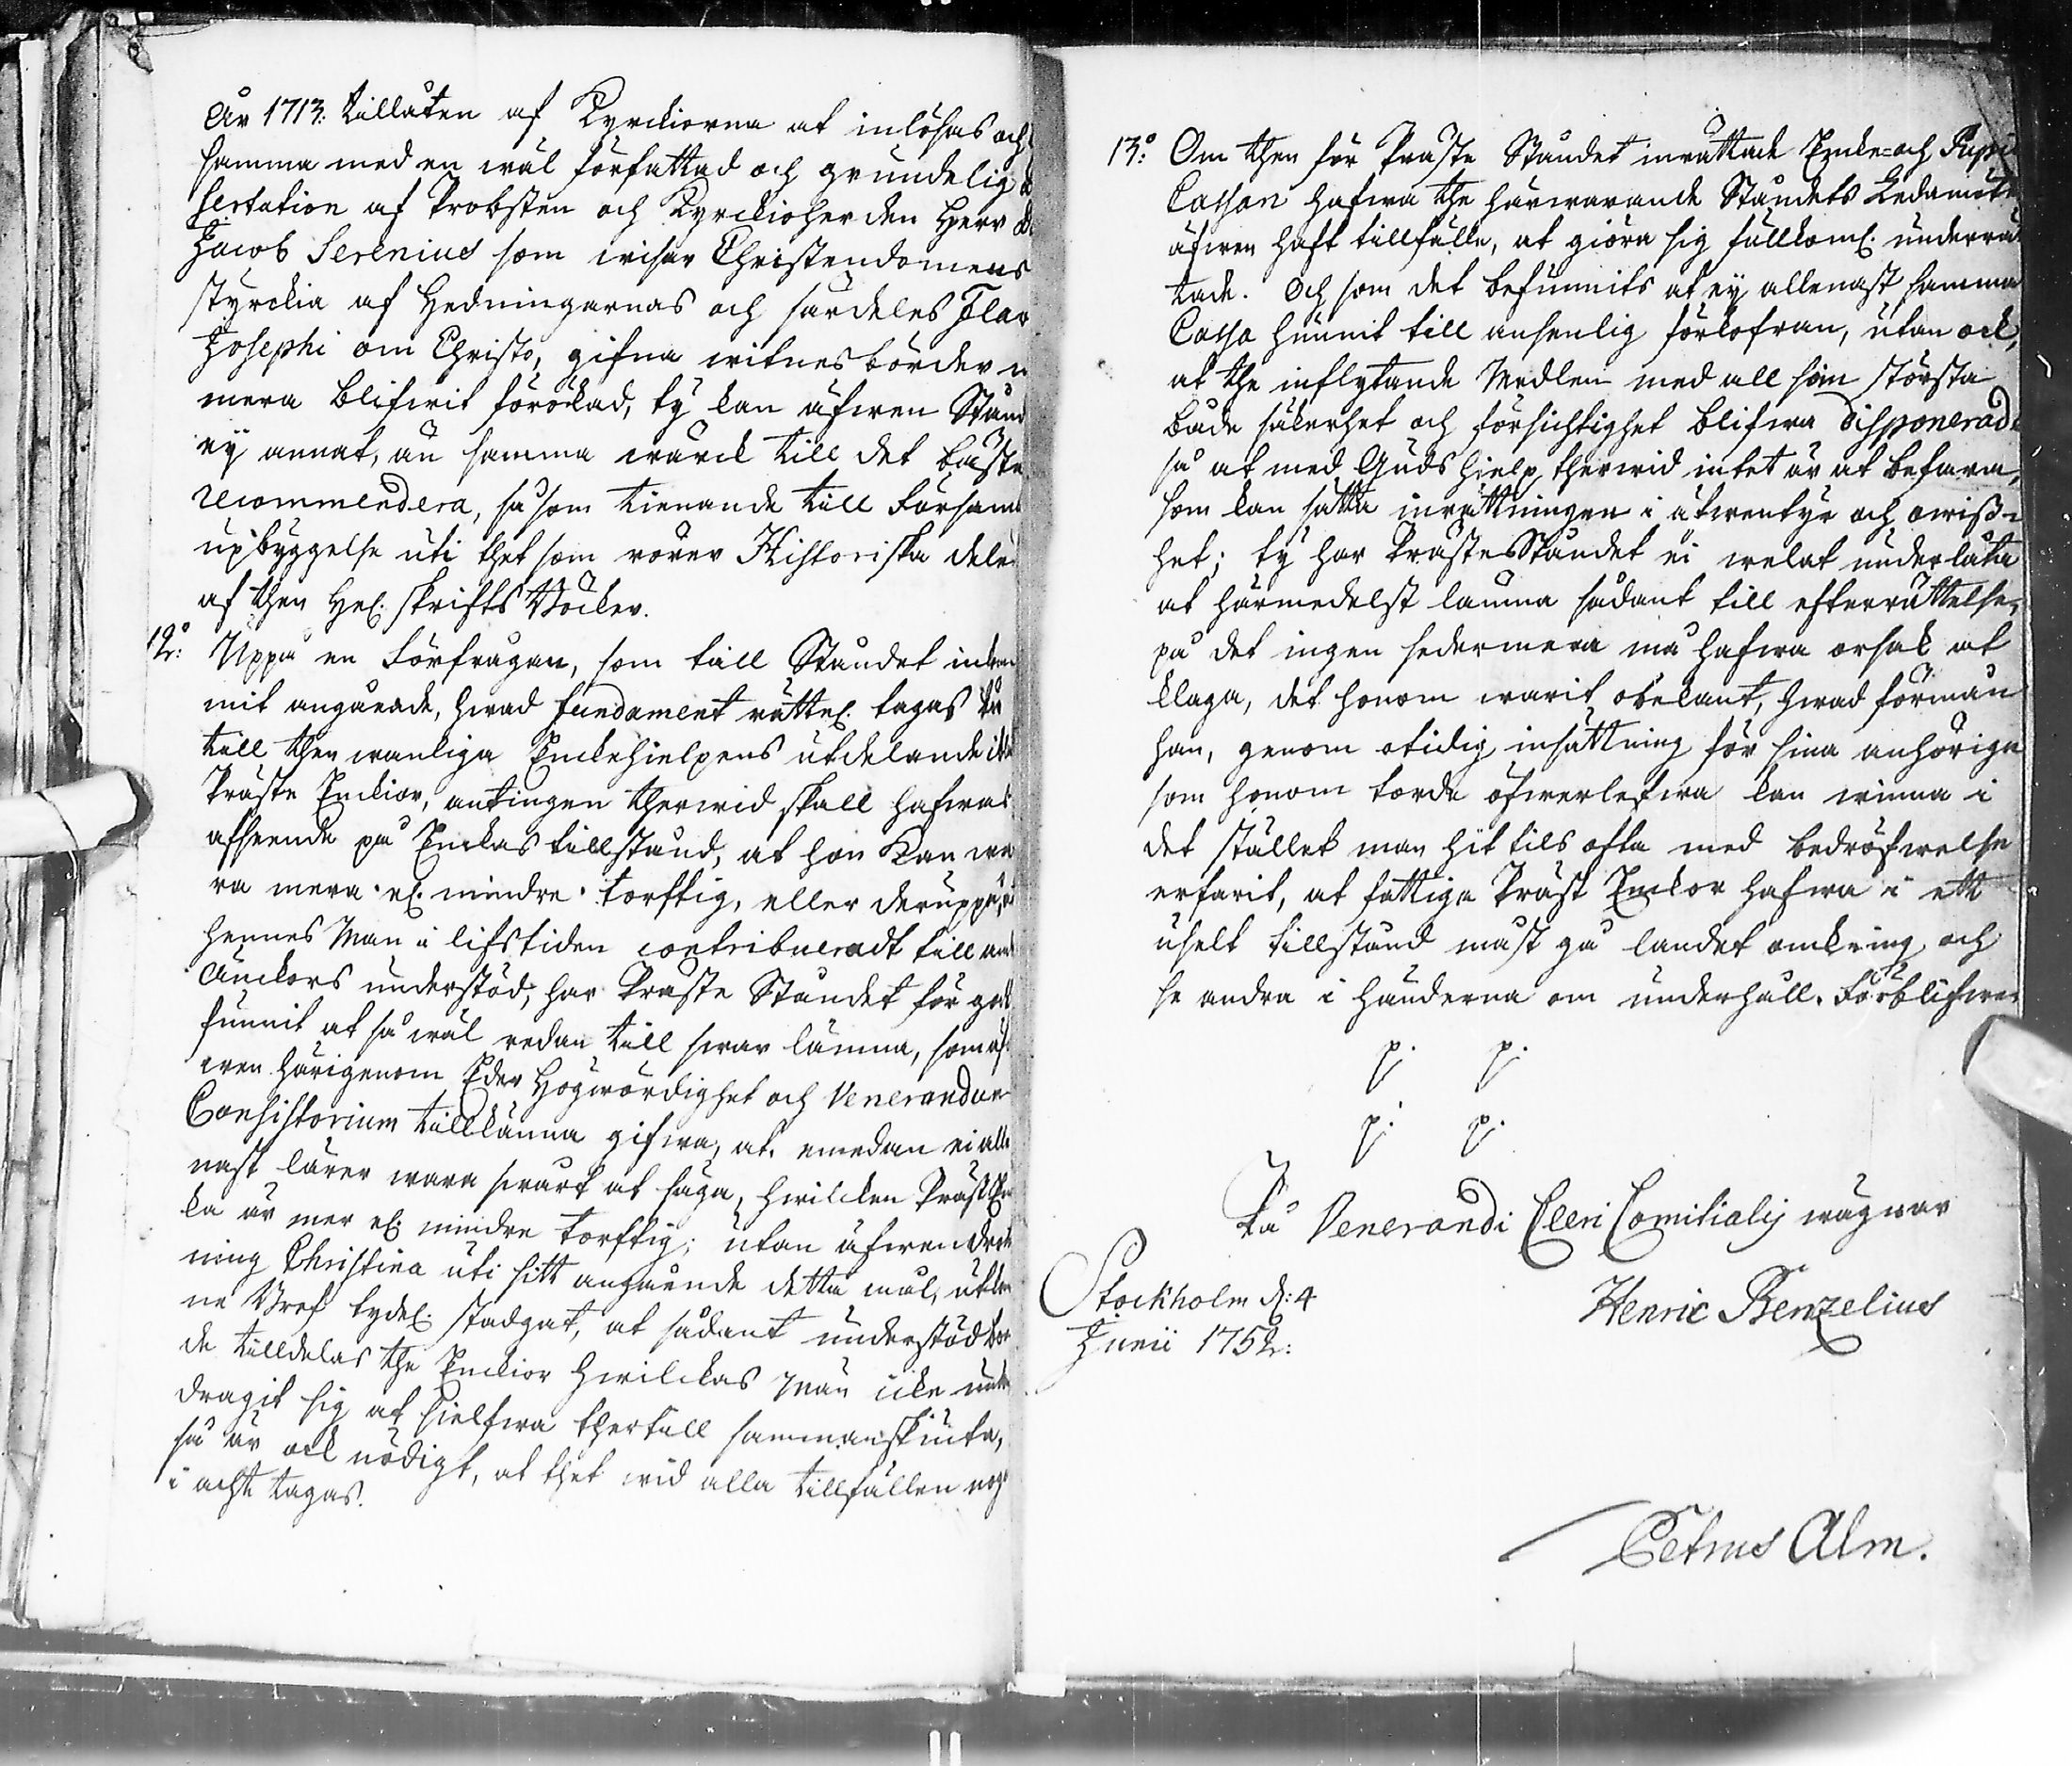 År 1713: tillåten af Kyrckiorna at inlösas och
samma med en wäl författad och grundelig
sertation af Probsten och Kyrckioherden Herr
Jacob Serenius som wisar Christendomens
styrckia af Hedningarnas och särdeles Flav
Josephi om Christo, gifna witnesbörder
mera blifwit förökad, ty kan äfwen Stånd
ej annat, än samma wärck till det bästa
recommendera, såsom tienande till Församl
upbyggelse uti thet som rörer Historiska dele
af then Hel. skrifts Böcker.
12: Uppå en Förfrågan, som till Ståndet inkom
mit angående, hwad fundament rättel. tagas
till then wanliga Enckehielpens utdelande
Präste Enckior, antingen therwid skall hafwas
afseende på Enckas tillstånd, at hon kan wa
ra mera el. mindre torftig, eller deruppå,
hennes Man i lifstiden contribueradt till
Änckors understöd, har Präste Ståndet för godt
funnit at så wäl redan till swar lämna, som äf
wen härigenom Eder Högwördighet och Venerandum
Consistorium tillkänna gifwa, at, emedan ei alle
nast lärer wara swårt at säga, hwilcken Präst En
ka är mer el. mindre torftig; utan äfwen Drott
ning Christina uti sitt angående detta mål, utkom
ne Bref tydel. stadgat, at sådant understöd bor
de tilldelas the Enckior hwilckas Män icke und
dragit sig at sielfwa thertill sammanskiuta,
så är ock nödigt, at thet wid alla tillfällen noga
i ackt tagas.
13: Om then för Präste Ståndet inrättade Encke- och Pupill
Cassan hafwa the härwarande Ståndets Ledamöter
äfwen haft tillfälle, at giöra sig fullkoml. underrät
tade. Och som det befunnits at ej allenast samma
Cassa hunnit till ansenlig förkofran, utan ock,
at the inflytande Medlen med all som största
både säkerhet och försichtighet blifwa disponerade
så at med Guds hielp therwid intet är at befara,
som kan sätta inrättningen i äfwentyr och owiss-
het; ty har PrästeStåndet ei welat underlåta
at härmedelst lämna sådant till efterrättelse,
på det ingen sedermera må hafwa orsak at
klaga, det honom warit obekant, hwad förmån
han, genom otidig insättning för sina anhöriga
som honom torde öfwerlefwa kan winna i
det stället man hit tils ofta med bedröfwelse
erfarit, at fattiga Präst Enckor hafwa i ett
uselt tillstånd måst gå landet omkring och
se andra i händerna om underhåll. Förblifwer
p. p.
p. p.
På Venerandi Cleri Comitialis wägnar
Stockholm d: 4
Junii 1752:
Henric Benzelius
Petrus Alm.